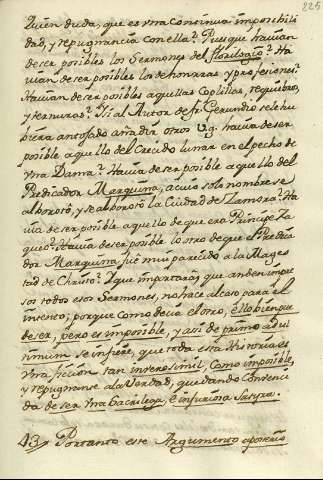 225
Quien duda, que es vna continua imposibili
dad, y repugnancia con ella? Pues que havian
de ser posibles los Sermones del florilogio? Ha
vian de ser posibles los de honras y profesiones?
Havian de ser posibles aquellas Coplillas, requiebros,
y ternuras? Si al Autor de fr. Gerundio se le hu
biera antojado añadir otros V.g. havia de ser
posible aquello del Crecido lunar en el pecho de
vna Dama? Havia de ser posible aquello del
Predicador Marquina, a cuio solo nombre se
alborotó, y se alborota la Ciudad de Zamora? Ha
via de ser posible aquello de que era Principe Ja
queo? Havia de ser posible lo otro de que el Predica
dor Marquina fue mui parecido a la Mages
tad de Christo? Y que importará, que anden impre
sos todos esos Sermones, no hace al caso para el
intento, porque como decia el otro, ello bien pue
de ser, pero es imposible, y asi de primo ad ul
timum se infiere, que toda esta Historia es
vna ficcion tan inverosimil, como imposible,
y repugnante a la verdad, quedando convenci
da de ser vna Sacrilega, e injuriosa Satyra.
43 Por tanto este Argumento